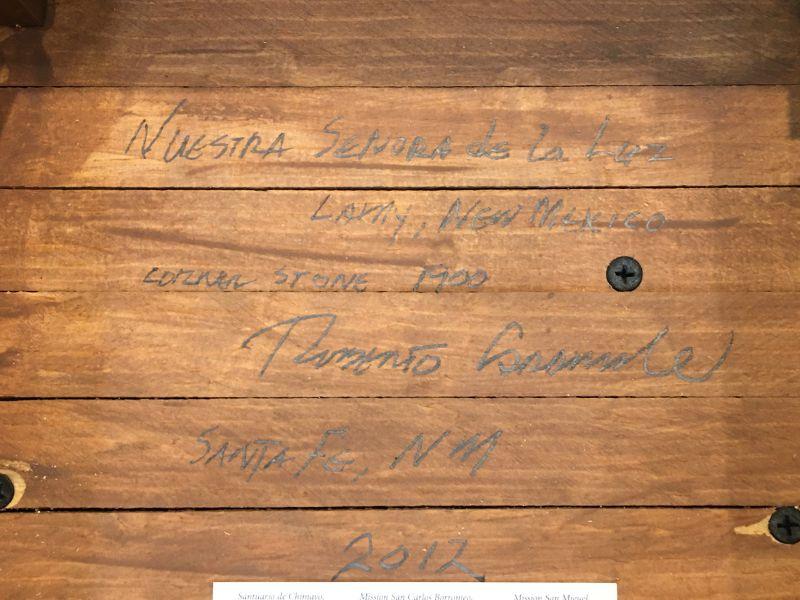 Nuestra Senora de la Luz
Lamy, New Mexico
Corner Stone 1900
Roberto
Santa Fe, NM
2012
Santuario de Chimayo, Mission San Carlos Borromeo, Mission San Miguel